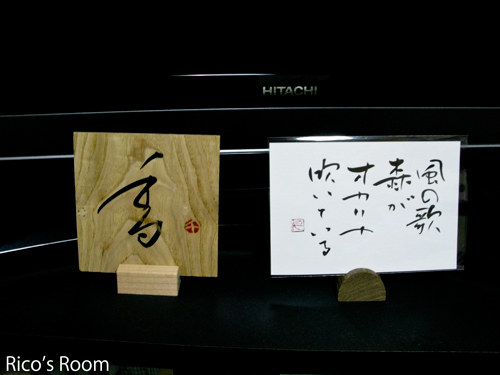 HITACHI
香
風の歌
森が
オカリナ
吹いている
Rico's Room